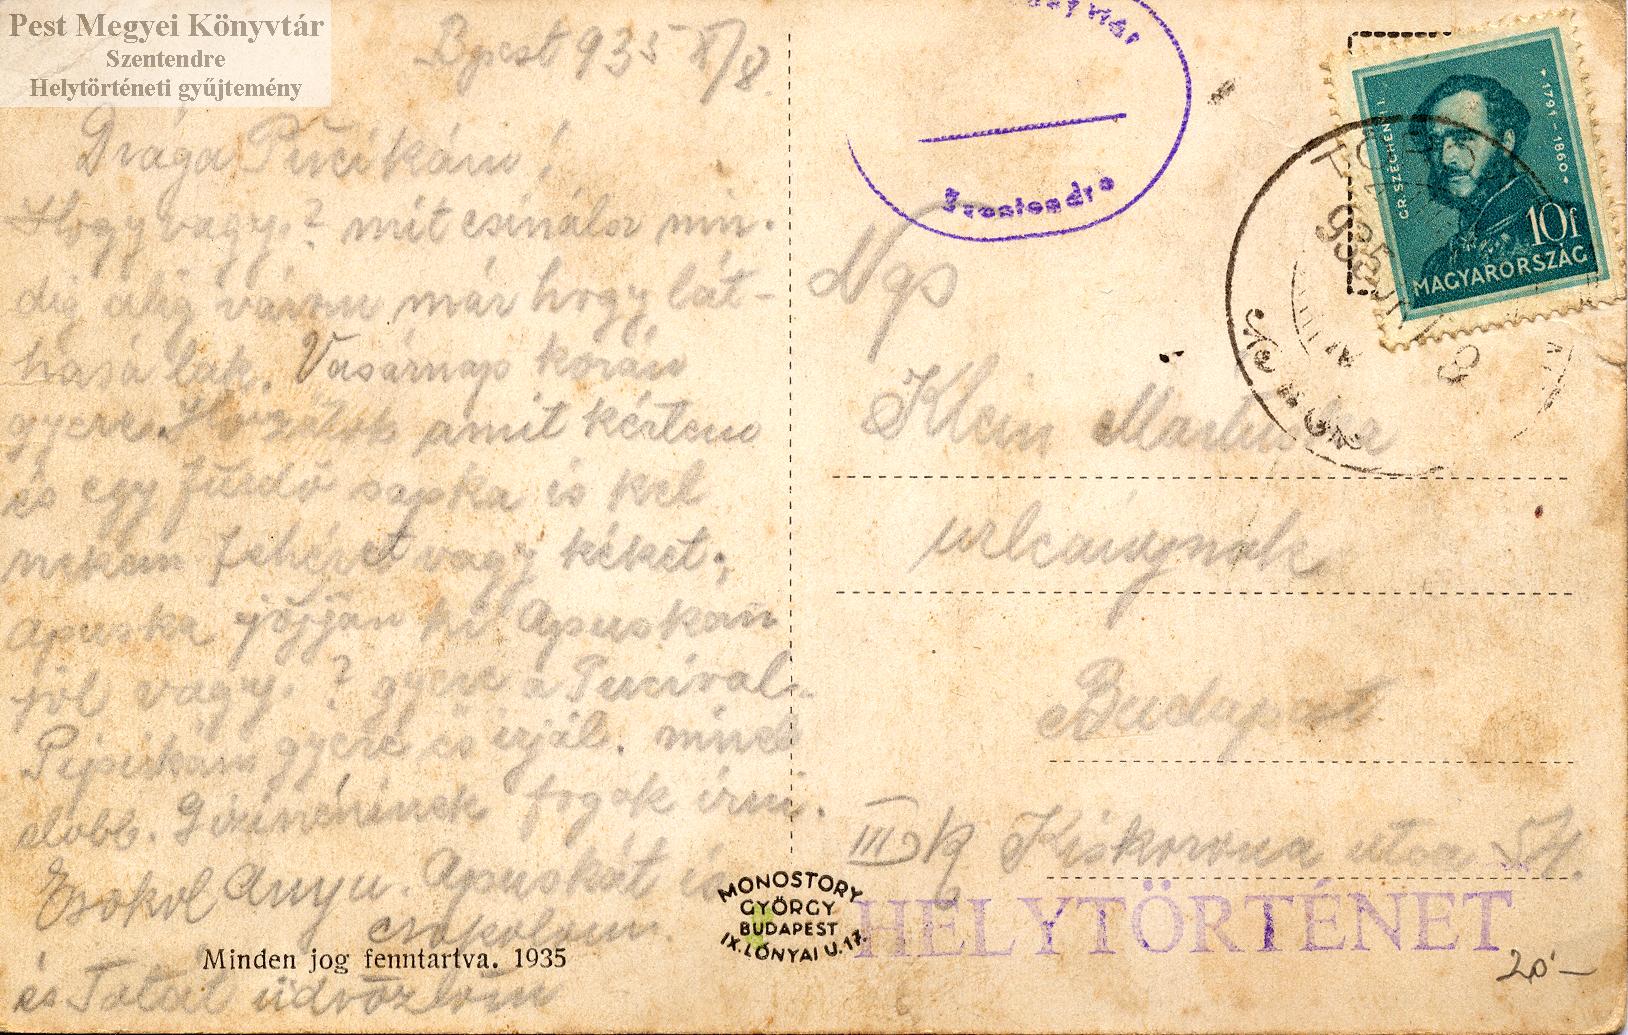 Pest Megyei Könyvtár
Szentendre
Helytörténeti gyűjtemény
Bpest 935 X/8.
Drága Pucikám!
Hogy vagy.? mit csinálsz min-
dig alig várom már hogy lát-
hassa lak. Vasárnap korán
gyere. Hozzátok amit kértem
és egy fürdő sapka is kel
nekem fehéret vagy kéket.
Apuska jöjjön ki Apuskám
jól vagy.? gyere a Pucival.
Pipiskám gyere és irjál. minél
elobb. Gizinéninek fogok irni.
Csokol Anyu. Apuskát is
csokolom.
és Tatát üdvözlöm
Minden jog fenntartva. 1935
MONOSTORY
GYÖRGY
BUDAPEST
IX. LÓNYAI U. 17.
Szentendre
GR. SZÉCHENYI I.
1791-1860
10f
MAGYARORSZÁG
935
Ngs
Klein
urleánynak
Budapest
III. Kiskorona utca 54.
HELYTÖRTÉNET
20-